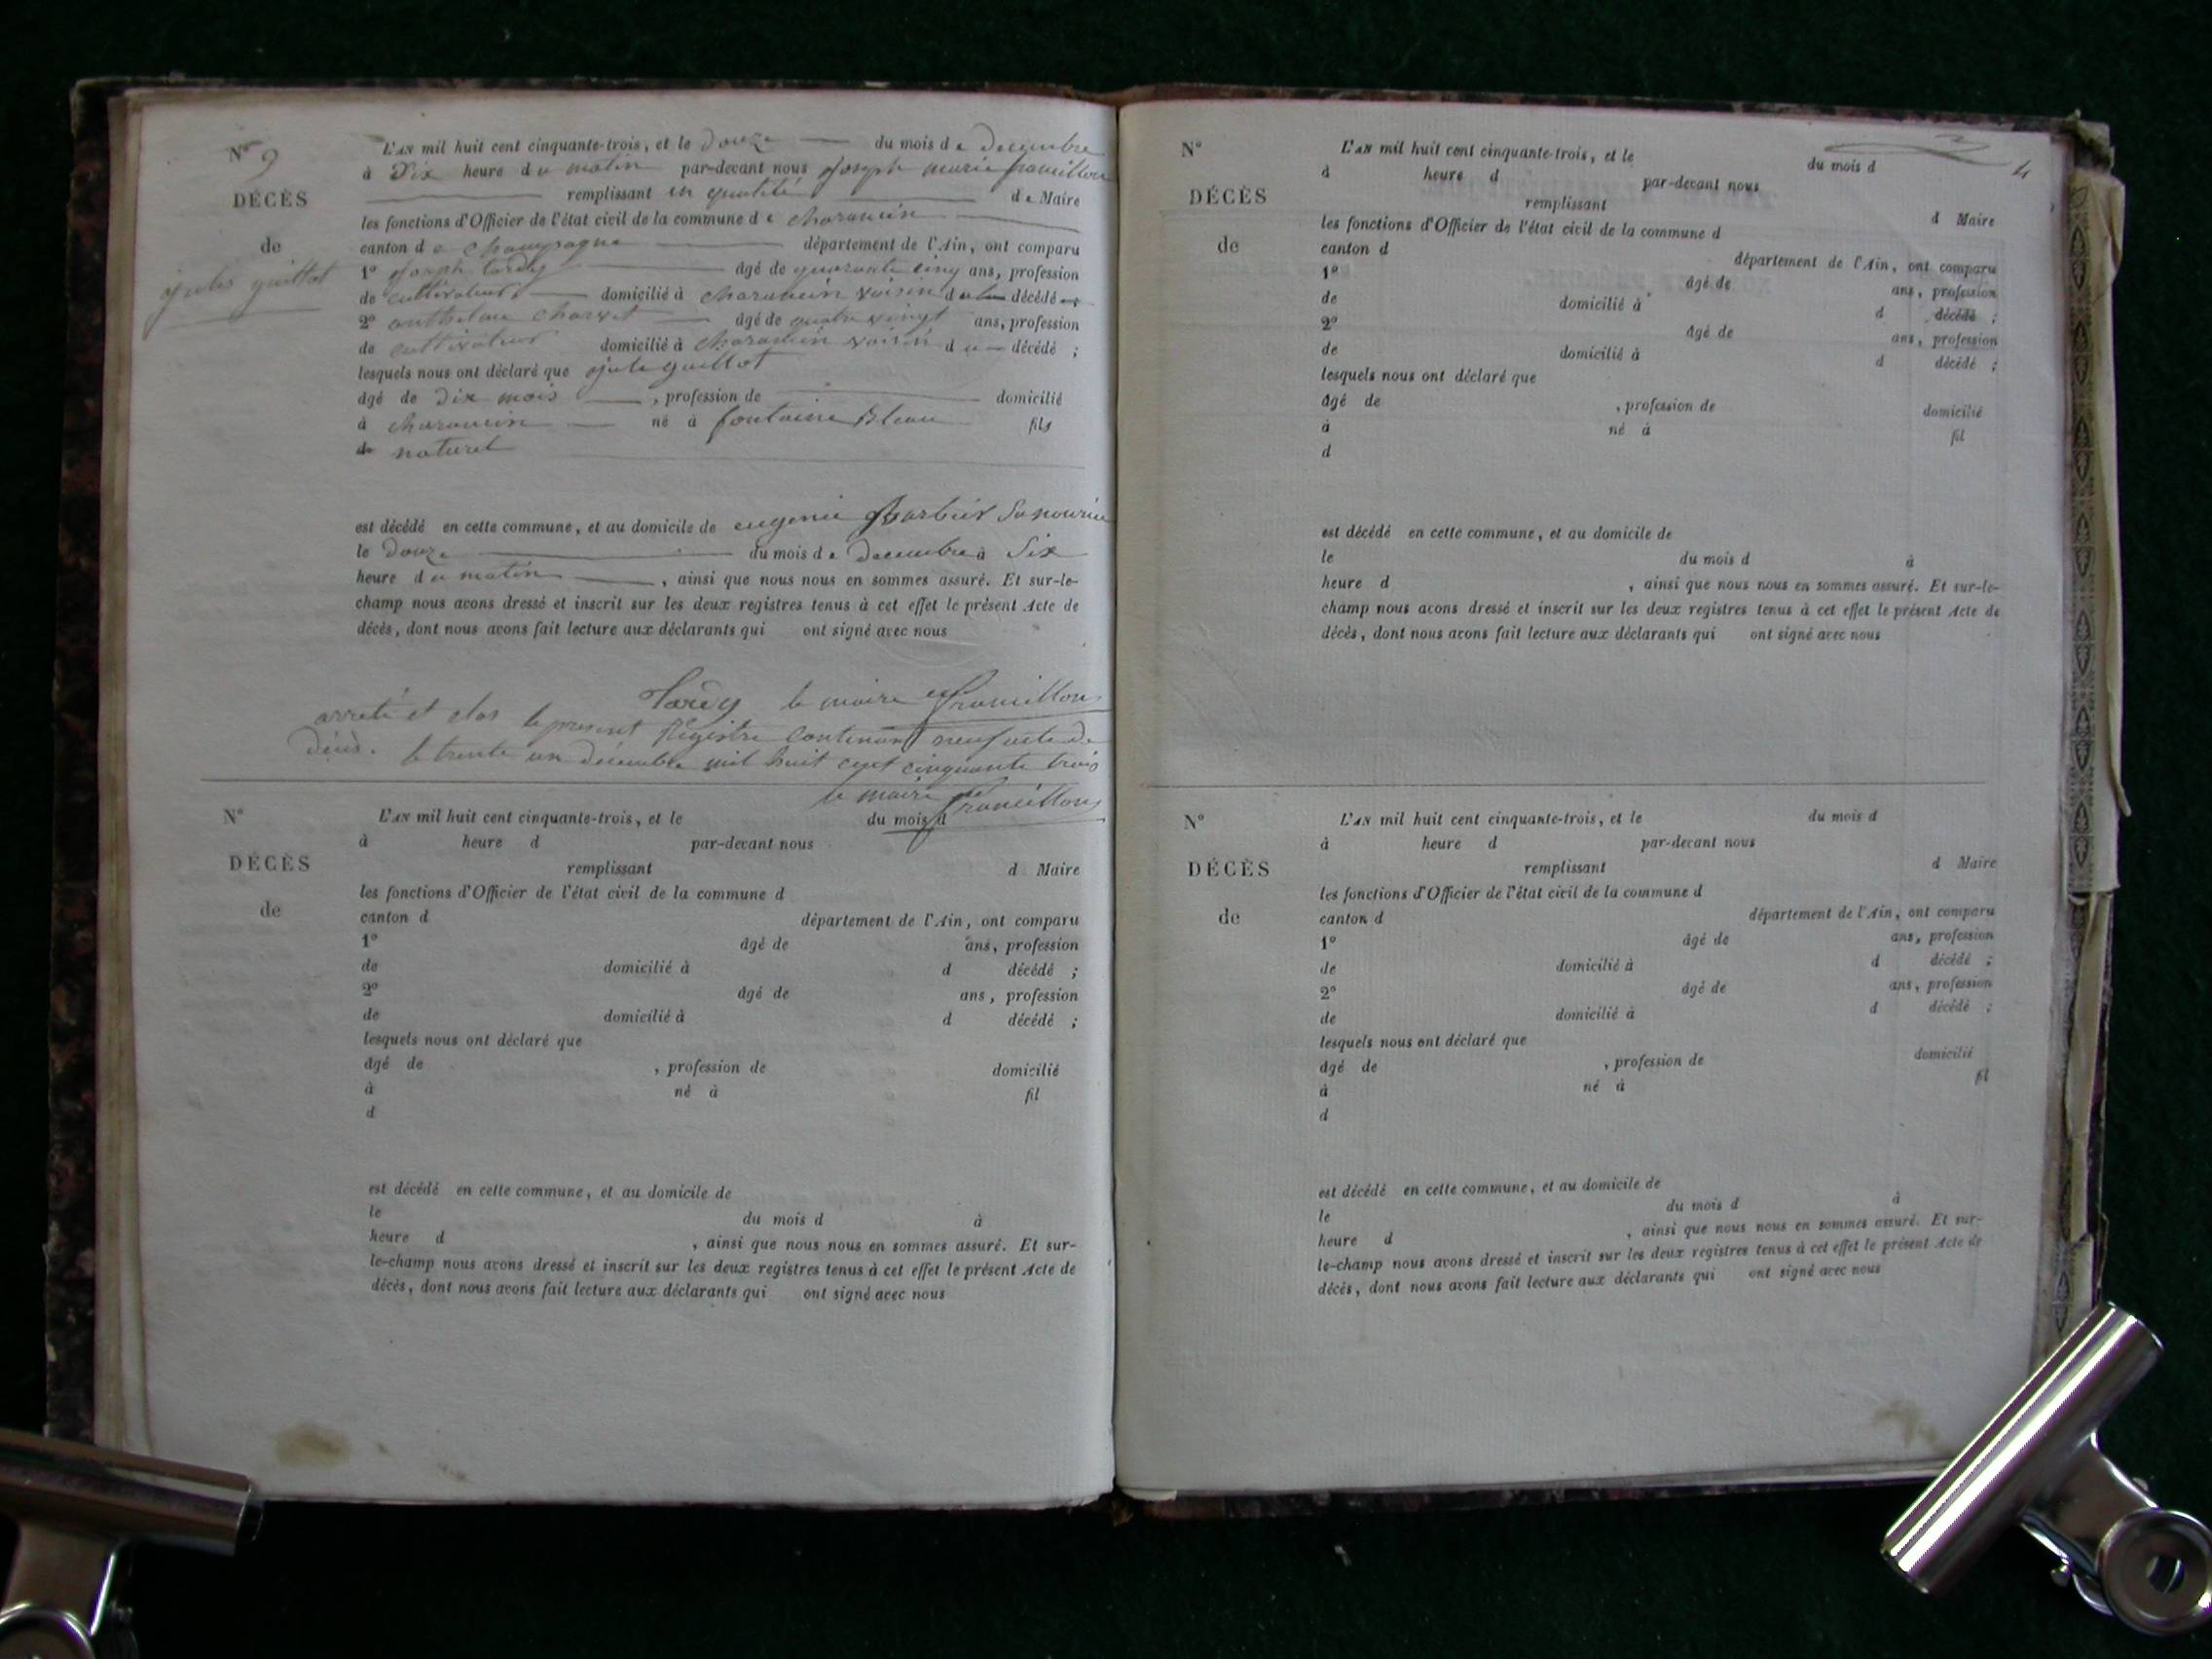 N° 9
DÉCÈS
de
jules guillot
L'AN mil huit cent cinquante-trois, et le douze du mois de decembre
à Dix heure du matin par-devant nous Joseph marie francillon
remplissant en qualité de Maire
les fonctions d'Officier de l'état civil de la commune de charancin
canton de champagne département de l'Ain, ont comparu
1° Joseph tardy âgé de quarante cinq ans, profession
de cultivateur domicilié à charancin voisin du décédé
2° anthelme charvet âgé de quatre vingt ans, profession
de cultivateur domicilié à charancin voisin du décédé ;
lesquels nous ont déclaré que jule guillot
âgé de dix mois , profession de domicilié
à charancin né à fontaine Bleau fils
de naturel
est décédé en cette commune, et au domicile de eugenie Barbier
le Douze du mois de Decembre à Six
heure du matin , ainsi que nous nous en sommes assuré. Et sur-le-
champ nous avons dressé et inscrit sur les deux registres tenus à cet effet le présent Acte de
décès, dont nous avons fait lecture aux déclarants qui ont signé avec nous
Tardy le maire francillon
arreté et clos le present Registre contenant neuf acte de
décès. le trente un décembre mil huit cent cinquante trois
le maire francillon
N°
DÉCÈS
de
L'AN mil huit cent cinquante-trois, et le du mois d
à heure d par-devant nous
remplissant d Maire
les fonctions d'Officier de l'état civil de la commune d
canton d département de l'Ain, ont comparu
1° âgé de ans, profession
de domicilié à d décédé ;
2° âgé de ans, profession
de domicilié à d décédé ;
lesquels nous ont déclaré que
âgé de , profession de domicilié
à né à fil
d
est décédé en cette commune, et au domicile de
le du mois d à
heure d , ainsi que nous nous en sommes assuré. Et sur-
le-champ nous avons dressé et inscrit sur les deux registres tenus à cet effet le présent Acte de
décès, dont nous avons fait lecture aux déclarants qui ont signé avec nous
4
N°
DÉCÈS
de
L'AN mil huit cent cinquante-trois, et le du mois d
à heure d par-devant nous
remplissant d Maire
les fonctions d'Officier de l'état civil de la commune d
canton d département de l'Ain, ont comparu
1° âgé de ans, profession
de domicilié à d décédé ;
2° âgé de ans, profession
de domicilié à d décédé ;
lesquels nous ont déclaré que
âgé de , profession de domicilié
à né à fil
d
est décédé en cette commune, et au domicile de
le du mois d à
heure d , ainsi que nous nous en sommes assuré. Et sur-le-
champ nous avons dressé et inscrit sur les deux registres tenus à cet effet le présent Acte de
décès, dont nous avons fait lecture aux déclarants qui ont signé avec nous
N°
DÉCÈS
de
L'AN mil huit cent cinquante-trois, et le du mois d
à heure d par-devant nous
remplissant d Maire
les fonctions d'Officier de l'état civil de la commune d
canton d département de l'Ain, ont comparu
1° âgé de ans, profession
de domicilié à d décédé ;
2° âgé de ans, profession
de domicilié à d décédé ;
lesquels nous ont déclaré que
âgé de , profession de domicilié
à né à fil
d
est décédé en cette commune, et au domicile de
le du mois d à
heure d , ainsi que nous nous en sommes assuré. Et sur-
le-champ nous avons dressé et inscrit sur les deux registres tenus à cet effet le présent Acte de
décès, dont nous avons fait lecture aux déclarants qui ont signé avec nous